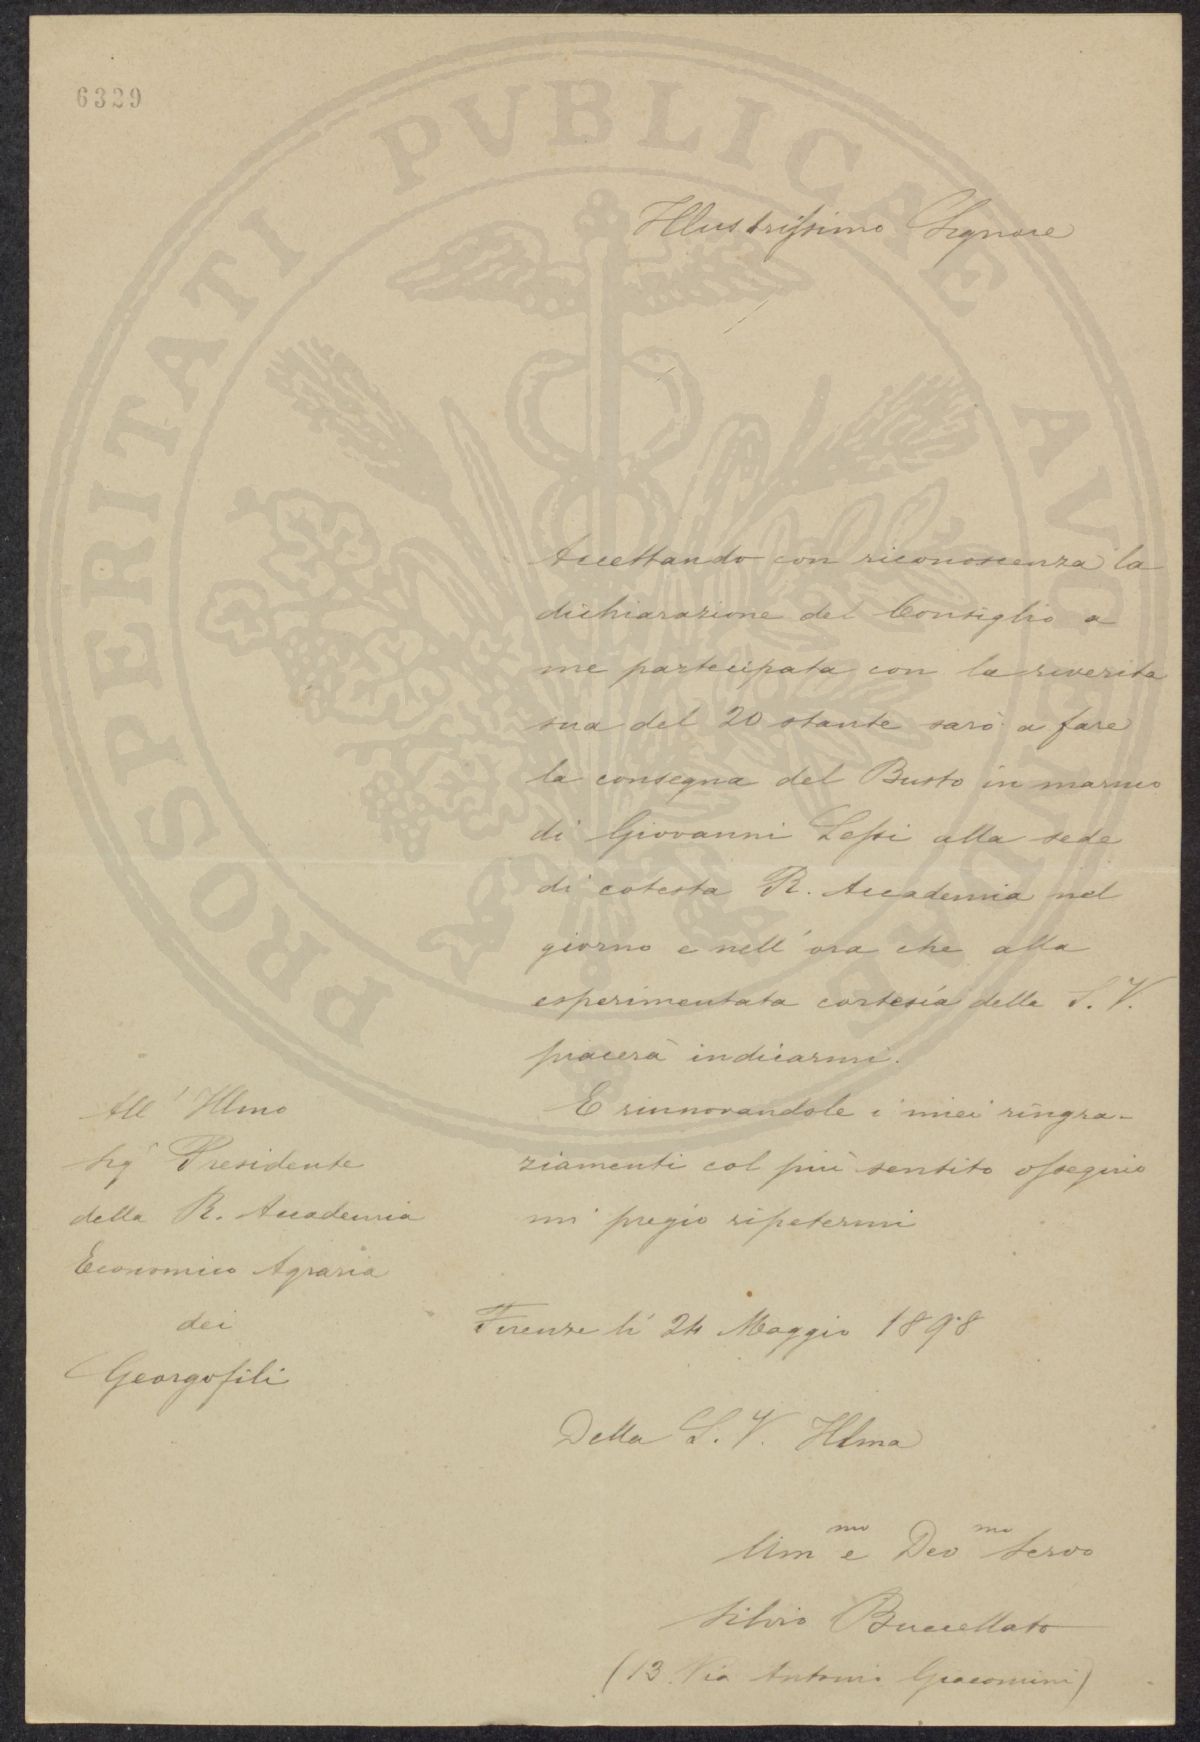 6329
PROSPERITATI PVBLICAE AVGENDAE
Illustrissimo Signore
Accettando con riconoscenza la
dichiarazione del Consiglio a
me partecipata con la riverita
sua del 20 stante sarò a fare
la consegna del Busto in marmo
di Giovanni Lessi alla sede
di cotesta R. Accademia nel
giorno e nell'ora che alla
esperimentata cortesia della S. V.
piacerà indicarmi.
E rinnovandole i miei ringra-
ziamenti col più sentito ossequio
mi pregio ripetermi
Firenze li 24 Maggio 1898
Della S. V. Illma
Um mo e Dev mo Servo
Silvio Buccellato
(13 Via Antonio Giacomini)
All' Illmo
Sigr Presidente
della R. Accademia
Economico Agraria
dei
Georgofili